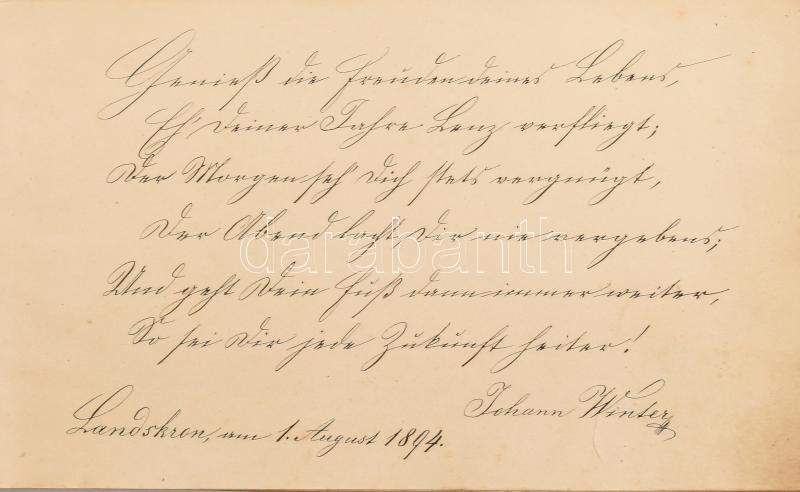 Genieß die Freuden deines Lebens,
Eh' Deiner Jahre Lenz verfliegt;
Der Morgen seh' Dich stets vergnügt,
Der Abend lacht Dir nie vergebens;
Und geht Dein Fuß dann immer weiter,
So sei Dir jede Zukunft heiter!
Johann Winter
Landskron, am 1. August 1894.
darabanth